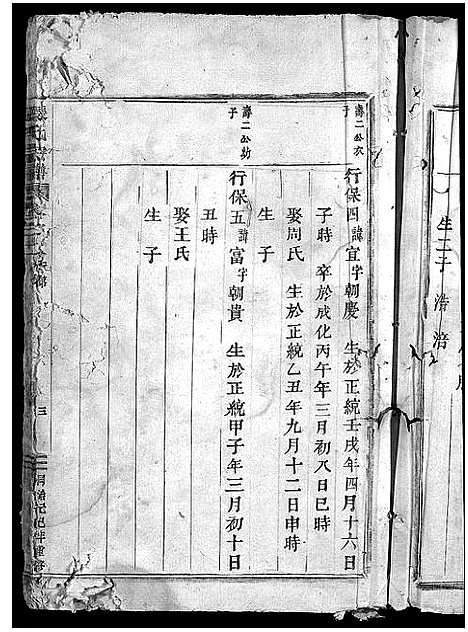 生二子 浩 涪
壽二公次子
行保四 諱宜字朝慶 生於正統壬戌年四月十六日
子時 卒於成化丙午年三月初八日巳時
娶周氏 生於正統乙丑年九月十二日申時
生子
壽二公幼子
行保五 諱富字朝貴 生於正統甲子年三月初十日
丑時
娶王氏
生子
三